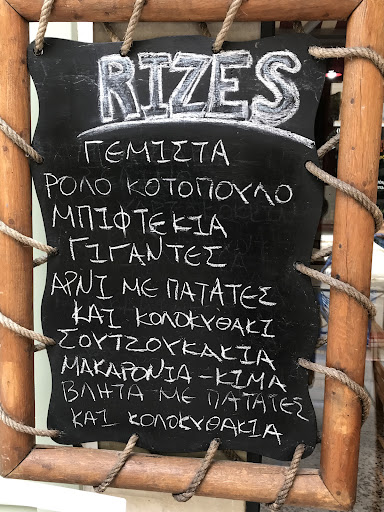 RIZES
ΓΕΜΙΣΤΑ
ΡΟΛΟ ΚΟΤΟΠΟΥΛΟ
ΜΠΙΦΤΕΚΙΑ
ΓΙΓΑΝΤΕΣ
ΑΡΝΙ ΜΕ ΠΑΤΑΤΕΣ
ΚΑΙ ΚΟΛΟΚΥΘΑΚΙ
ΣΟΥΤΖΟΥΚΑΚΙΑ
ΜΑΚΑΡΟΝΙΑ - ΚΙΜΑ
ΒΛΗΤΑ ΜΕ ΠΑΤΑΤΕΣ
ΚΑΙ ΚΟΛΟΚΥΘΑΚΙΑ